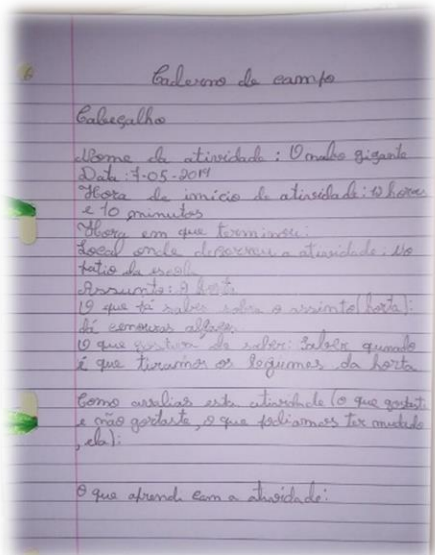 Caderno de campo
Cabeçalho
Nome da atividade: O nabo gigante
Data: 7-05-2019
Hora de início da atividade: horas
e 10 minutos
Hora em que terminou:
Local onde decorreu a atividade: No
patio da escola
Assunto: A horta
O que já sabes sobre o assunto (horta):
dá cenouras alfaces
O que gostava de saber: Saber quando
é que tiramos os legumes da horta
Como avalias esta atividade (o que gostaste
e não gostaste, o que podiamos ter mudado
, ela):
O que aprendi com a atividade: